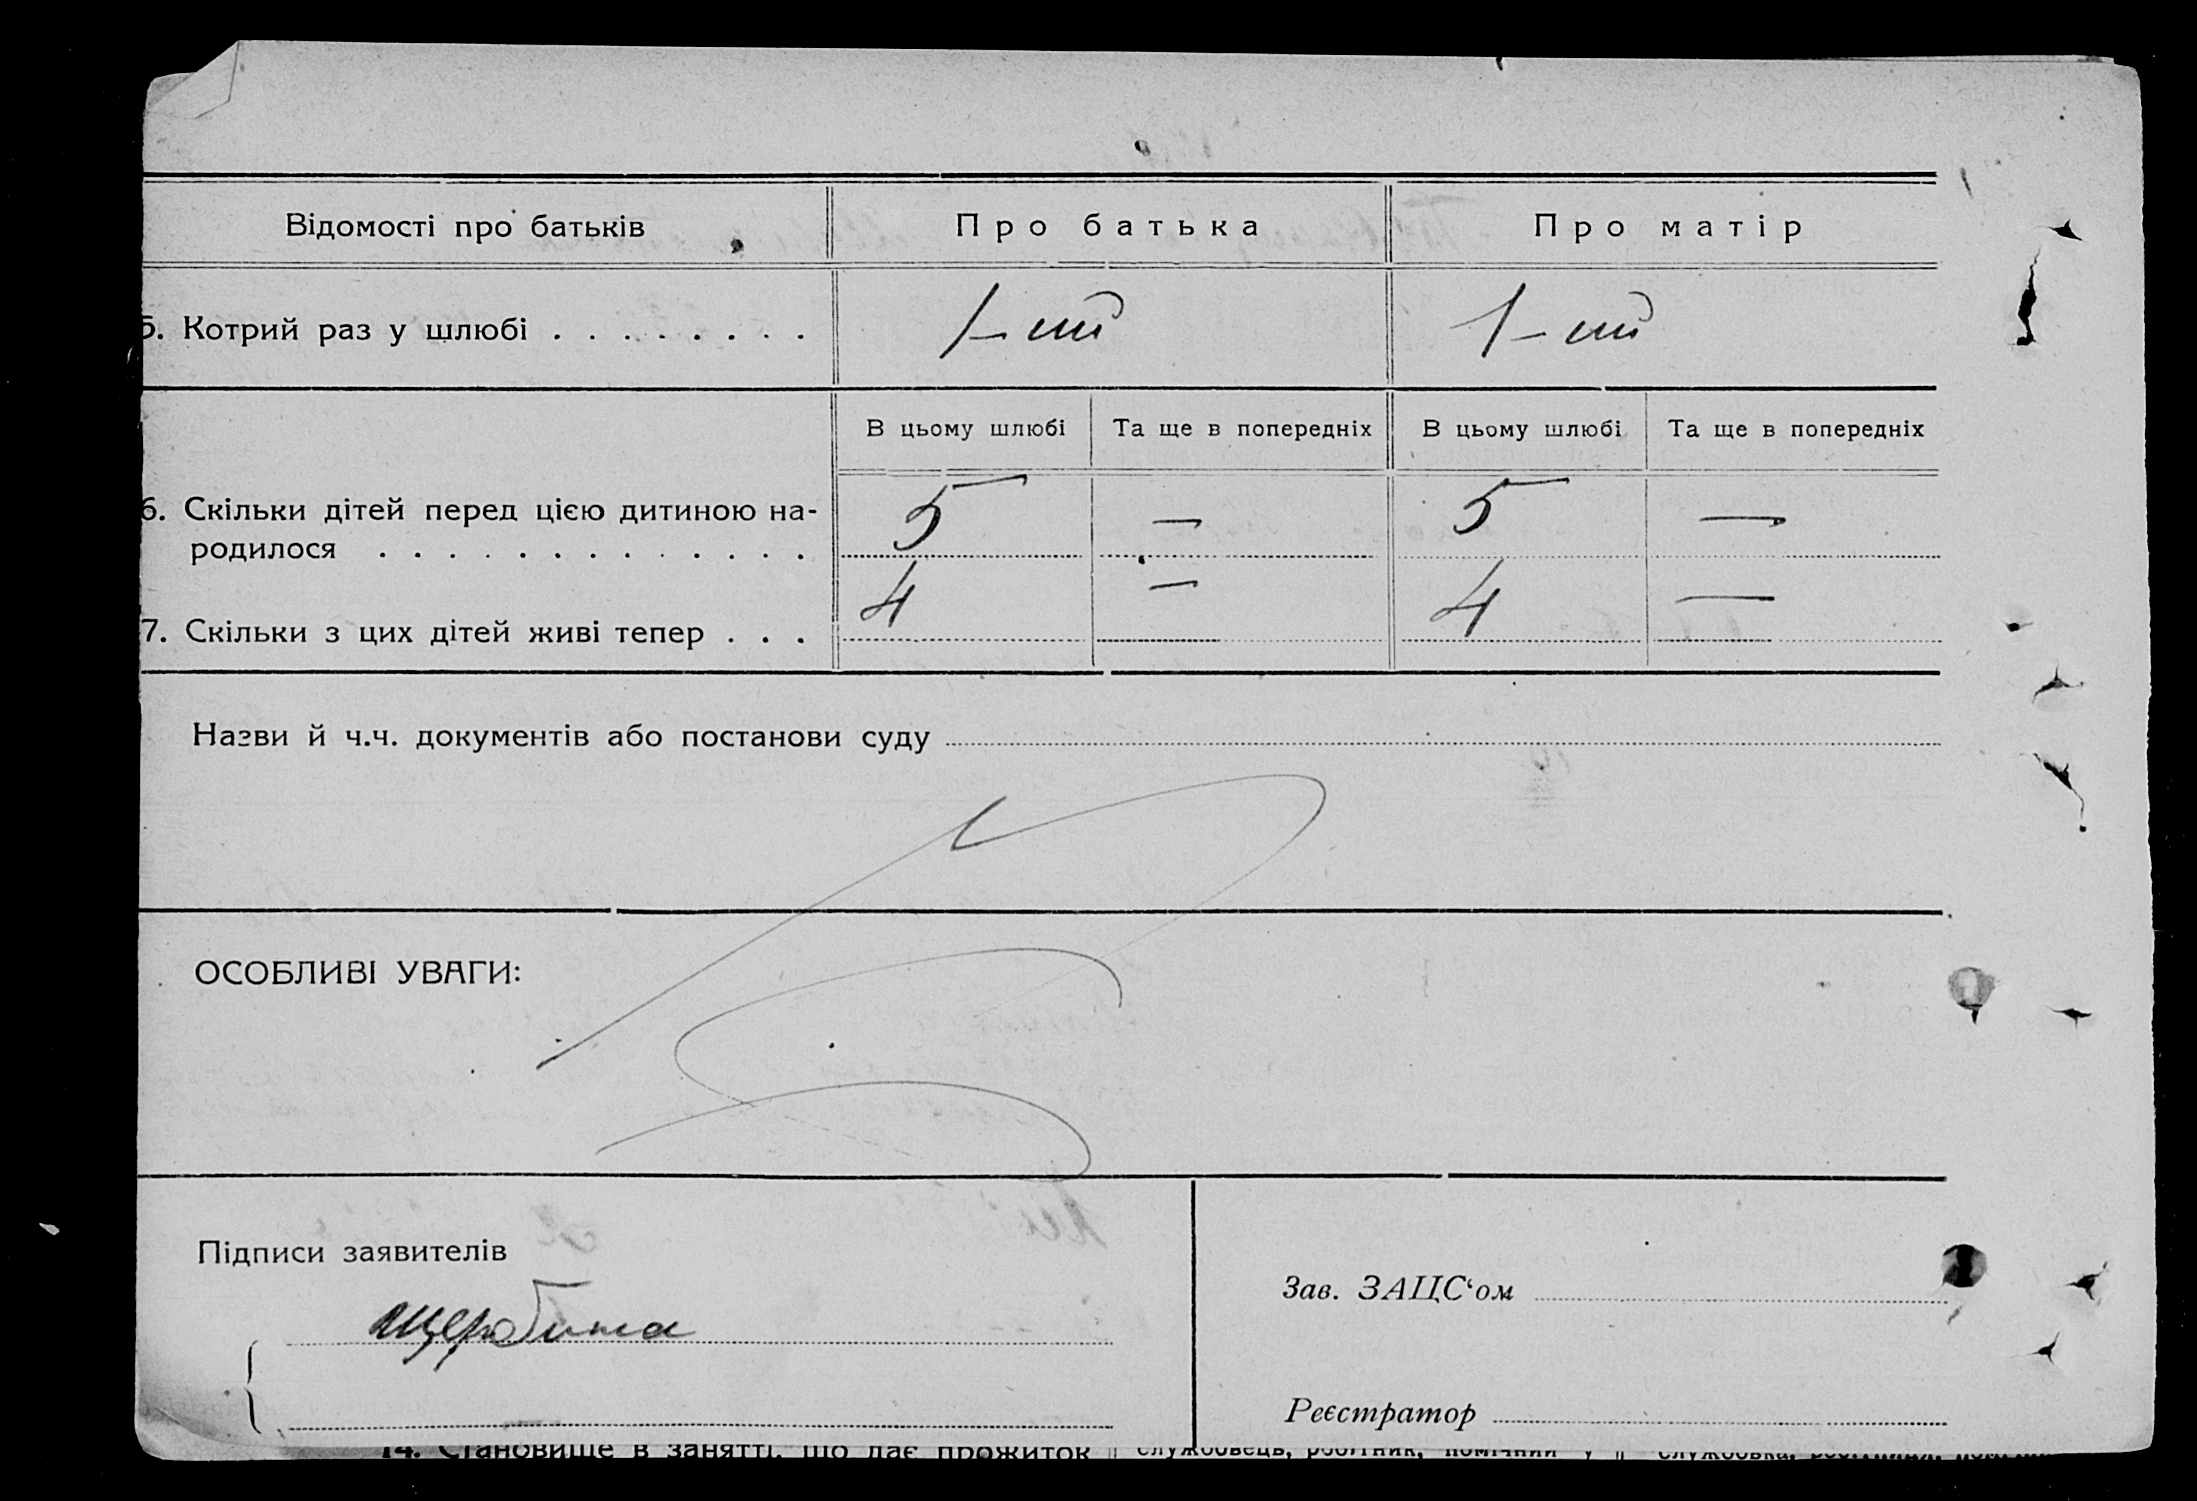 Відомості про батьків Про батька Про матір
5. Котрий раз у шлюбі . . . . . . . . 1-ий 1-ий
В цьому шлюбі Та ще в попередніх В цьому шлюбі Та ще в попередніх
6. Скільки дітей перед цією дитиною на-
родилося . . . . . . . . . . . . . 5 — 5 —
7. Скільки з цих дітей живі тепер . . . 4 — 4 —
Назви й ч.ч. документів або постанови суду
ОСОБЛИВІ УВАГИ:
Підписи заявителів
Щербина
Зав. ЗАЦС‘ом
Реєстратор
14. Становище в занятті, що дає прожиток службовець, робітник, помічний у службовка, робітниця,